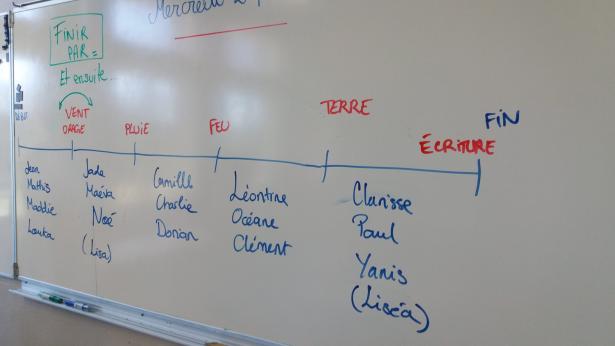 Mercredi
FINIR
PAR =
Et ensuite...
DÉBUT
VENT
ORAGE
PLUIE
FEU
TERRE
ÉCRITURE
FIN
Jean
Mathis
Maddie
Louka
Jade
Maëva
Noé
(Lisa)
Camille
Charlie
Dorian
Léontine
Océane
Clément
Clarisse
Paul
Yanis
(Liséa)